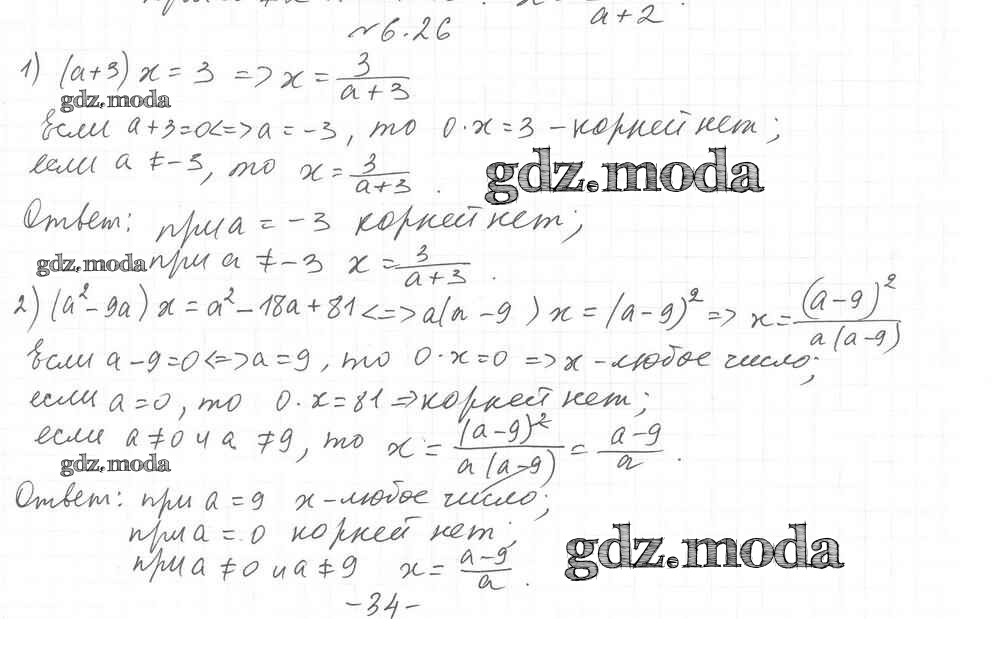 a+2 .
№6.26
1) (a+3) x = 3 => x = 3/(a+3)
gdz.moda
Если a+3=0<=>a=-3, то 0·x=3 - корней нет;
если a ≠ -3, то x = 3/(a+3) .
gdz.moda
Ответ: при a = -3 корней нет;
gdz.moda при a ≠ -3 x = 3/(a+3) .
2) (a²-9a) x = a²-18a+81 <=> a(a-9) x = (a-9)² => x = (a-9)²/(a(a-9))
Если a-9=0<=>a=9, то 0·x=0 => x - любое число;
если a=0, то 0·x=81 => корней нет;
если a≠0 и a≠9, то x = (a-9)²/(a(a-9)) = (a-9)/a .
gdz.moda
Ответ: при a=9 x - любое число;
при a=0 корней нет;
gdz.moda
при a≠0 и a≠9 x = (a-9)/a .
-34-